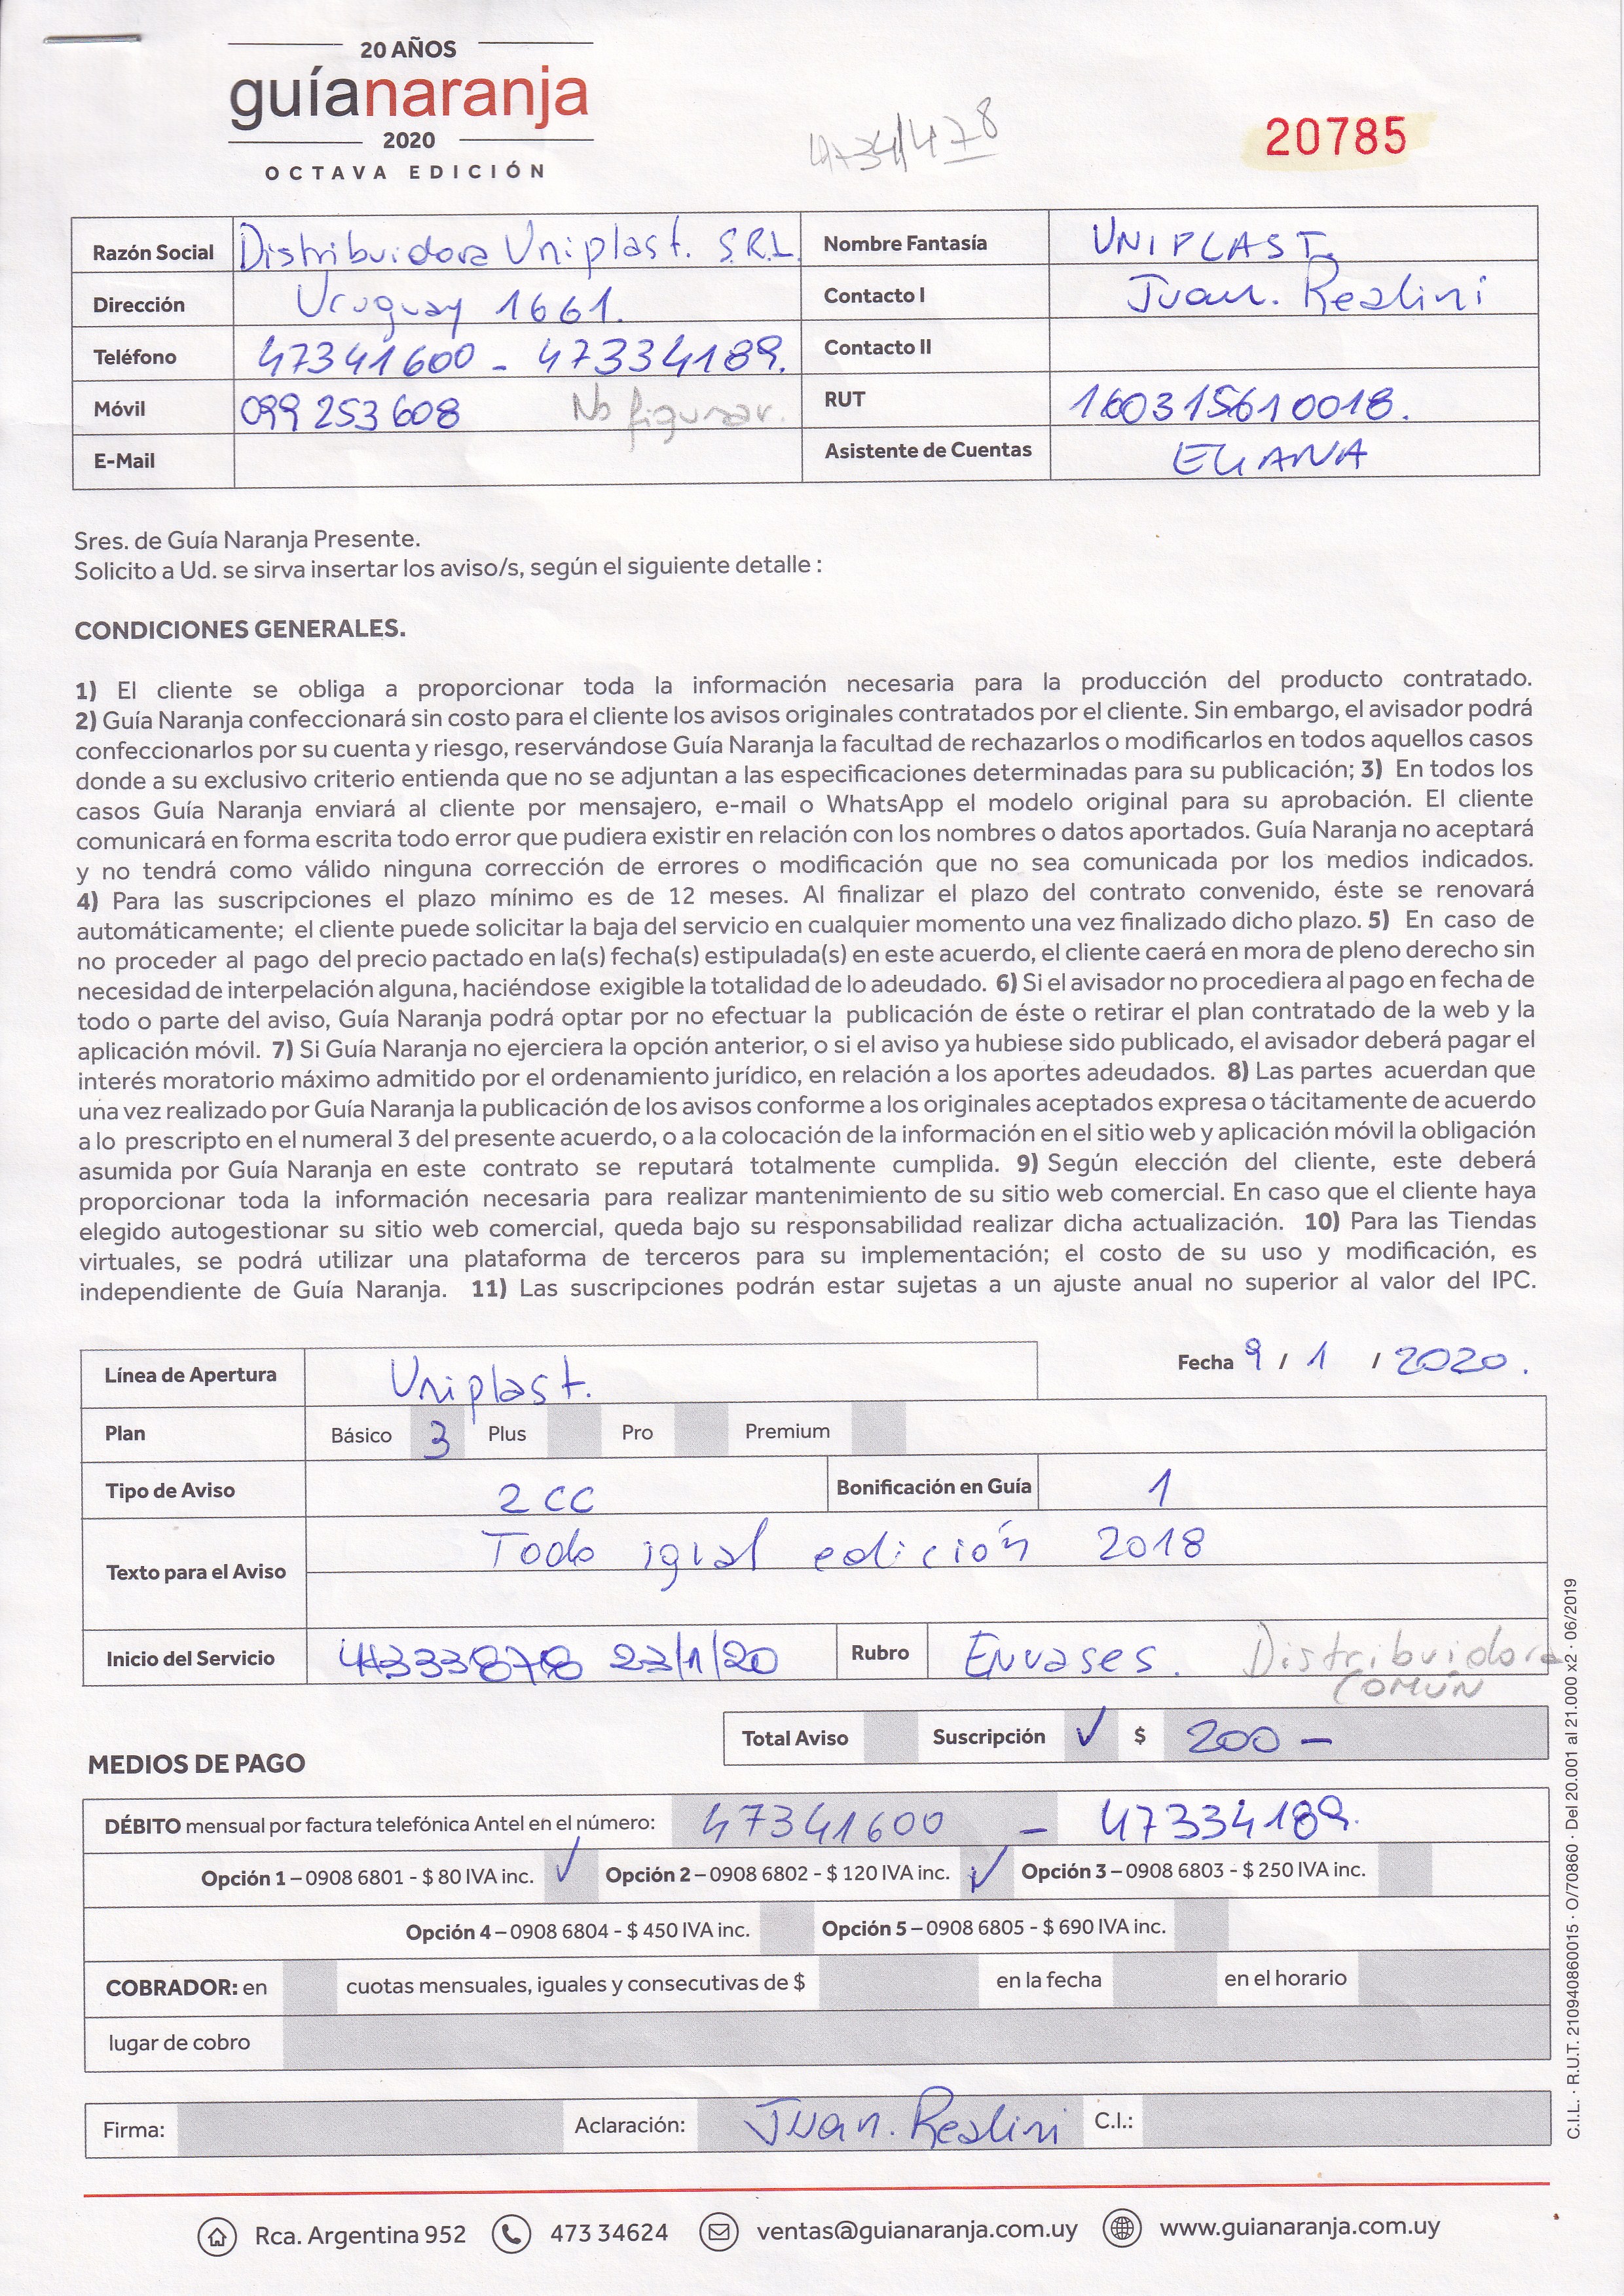 20 AÑOS
guíanaranja
2020
OCTAVA EDICIÓN
4734/478
20785
Razón Social Distribuidora Uniplast. S.R.L Nombre Fantasía UNIPLAST.
Dirección Uruguay 1661. Contacto I Juan. Realini
Teléfono 47341600 - 47334189. Contacto II
Móvil 099 253 608 No figurar. RUT 160315610018.
E-Mail Asistente de Cuentas ELIANA
Sres. de Guía Naranja Presente.
Solicito a Ud. se sirva insertar los aviso/s, según el siguiente detalle :
CONDICIONES GENERALES.
1) El cliente se obliga a proporcionar toda la información necesaria para la producción del producto contratado.
2) Guía Naranja confeccionará sin costo para el cliente los avisos originales contratados por el cliente. Sin embargo, el avisador podrá
confeccionarlos por su cuenta y riesgo, reservándose Guía Naranja la facultad de rechazarlos o modificarlos en todos aquellos casos
donde a su exclusivo criterio entienda que no se adjuntan a las especificaciones determinadas para su publicación; 3) En todos los
casos Guía Naranja enviará al cliente por mensajero, e-mail o WhatsApp el modelo original para su aprobación. El cliente
comunicará en forma escrita todo error que pudiera existir en relación con los nombres o datos aportados. Guía Naranja no aceptará
y no tendrá como válido ninguna corrección de errores o modificación que no sea comunicada por los medios indicados.
4) Para las suscripciones el plazo mínimo es de 12 meses. Al finalizar el plazo del contrato convenido, éste se renovará
automáticamente; el cliente puede solicitar la baja del servicio en cualquier momento una vez finalizado dicho plazo. 5) En caso de
no proceder al pago del precio pactado en la(s) fecha(s) estipulada(s) en este acuerdo, el cliente caerá en mora de pleno derecho sin
necesidad de interpelación alguna, haciéndose exigible la totalidad de lo adeudado. 6) Si el avisador no procediera al pago en fecha de
todo o parte del aviso, Guía Naranja podrá optar por no efectuar la publicación de éste o retirar el plan contratado de la web y la
aplicación móvil. 7) Si Guía Naranja no ejerciera la opción anterior, o si el aviso ya hubiese sido publicado, el avisador deberá pagar el
interés moratorio máximo admitido por el ordenamiento jurídico, en relación a los aportes adeudados. 8) Las partes acuerdan que
una vez realizado por Guía Naranja la publicación de los avisos conforme a los originales aceptados expresa o tácitamente de acuerdo
a lo prescripto en el numeral 3 del presente acuerdo, o a la colocación de la información en el sitio web y aplicación móvil la obligación
asumida por Guía Naranja en este contrato se reputará totalmente cumplida. 9) Según elección del cliente, este deberá
proporcionar toda la información necesaria para realizar mantenimiento de su sitio web comercial. En caso que el cliente haya
elegido autogestionar su sitio web comercial, queda bajo su responsabilidad realizar dicha actualización. 10) Para las Tiendas
virtuales, se podrá utilizar una plataforma de terceros para su implementación; el costo de su uso y modificación, es
independiente de Guía Naranja. 11) Las suscripciones podrán estar sujetas a un ajuste anual no superior al valor del IPC.
Línea de Apertura Uniplast. Fecha 9 / 1 / 2020.
Plan Básico 3 Plus Pro Premium
Tipo de Aviso 2 CC Bonificación en Guía 1
Texto para el Aviso Todo igual edición 2018
Inicio del Servicio 23/1/20 Rubro Envases. Distribuidora
COMÚN
Total Aviso Suscripción ✓ $ 200 -
MEDIOS DE PAGO
DÉBITO mensual por factura telefónica Antel en el número: 47341600 - 47334189.
Opción 1 – 0908 6801 - $ 80 IVA inc. ✓ Opción 2 – 0908 6802 - $ 120 IVA inc. ✓ Opción 3 – 0908 6803 - $ 250 IVA inc.
Opción 4 – 0908 6804 - $ 450 IVA inc. Opción 5 – 0908 6805 - $ 690 IVA inc.
COBRADOR: en cuotas mensuales, iguales y consecutivas de $ en la fecha en el horario
lugar de cobro
Firma: Aclaración: Juan. Realini C.I.:
Rca. Argentina 952 473 34624 ventas@guianaranja.com.uy www.guianaranja.com.uy
C.I.L. · R.U.T. 210940860015 · O/70860 · Del 20.001 al 21.000 x2 · 06/2019